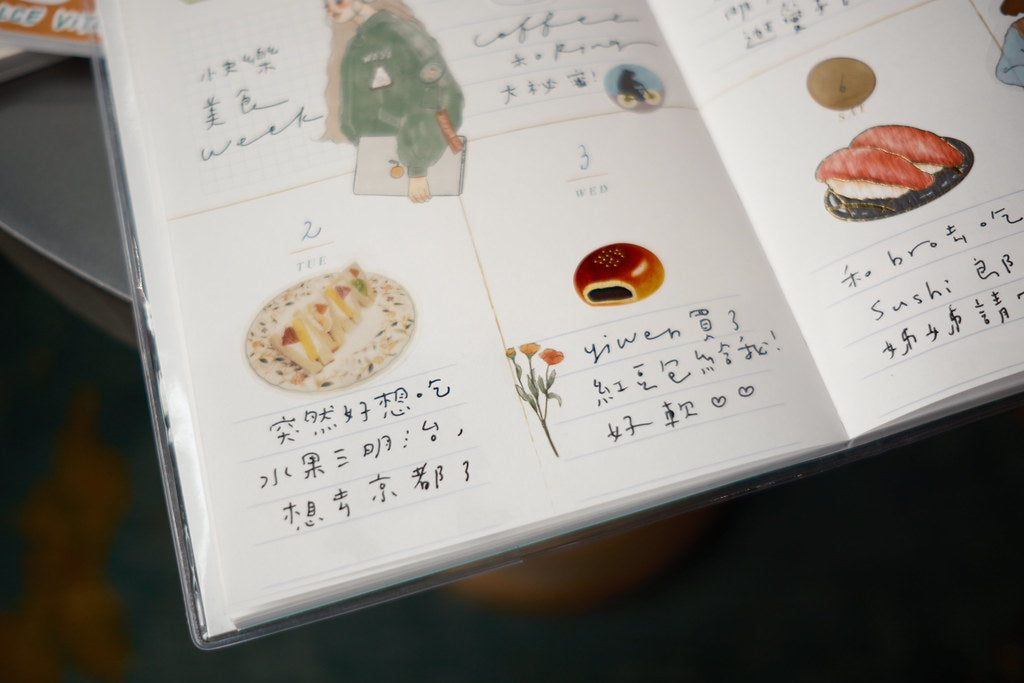 DOLCE VITA
小快樂
美食
week
coffee
大秘密!
2
TUE
突然好想吃
水果三明治,
想去京都了
3
WED
yiwen買了
紅豆包給我!
好軟♡♡
6
SAT
和bro去吃
sushi 郎
姊姊請